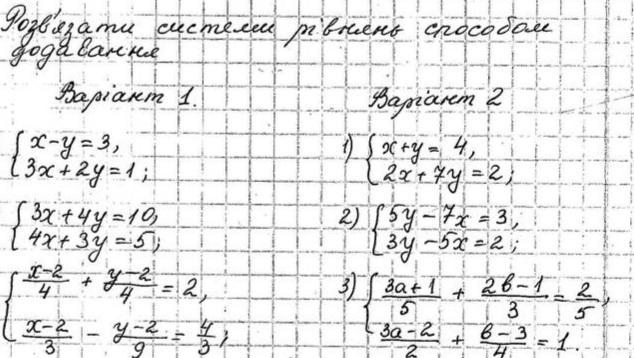 Розв'язати системи рівнянь способом
додавання
Варіант 1.
{ x-y=3,
3x+2y=1;
{ 3x+4y=10,
4x+3y=5;
{ (x-2)/4 + (y-2)/4 = 2,
(x-2)/3 - (y-2)/9 = 4/3;
Варіант 2
1) { x+y= 4,
2x+7y=2;
2) { 5y-7x=3,
3y-5x=2;
3) { (3a+1)/5 + (2b-1)/3 = 2/5,
(3a-2)/2 + (b-3)/4 = 1.